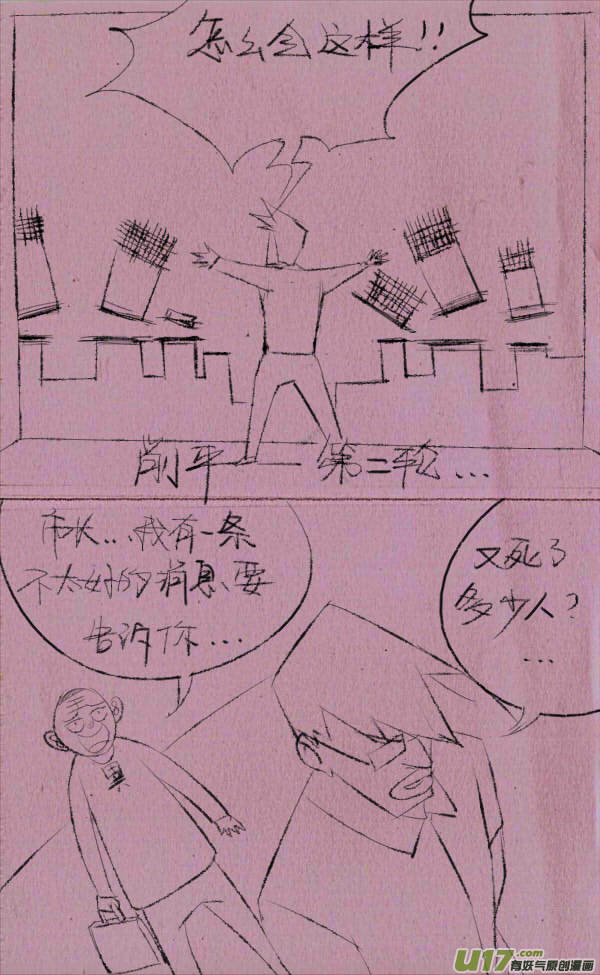 怎么会这样!!
削平——第二轮...
市长...我有一条
不太好的消息、要
告诉你...
又死了
多少人?
...
U17.com
有妖气原创漫画